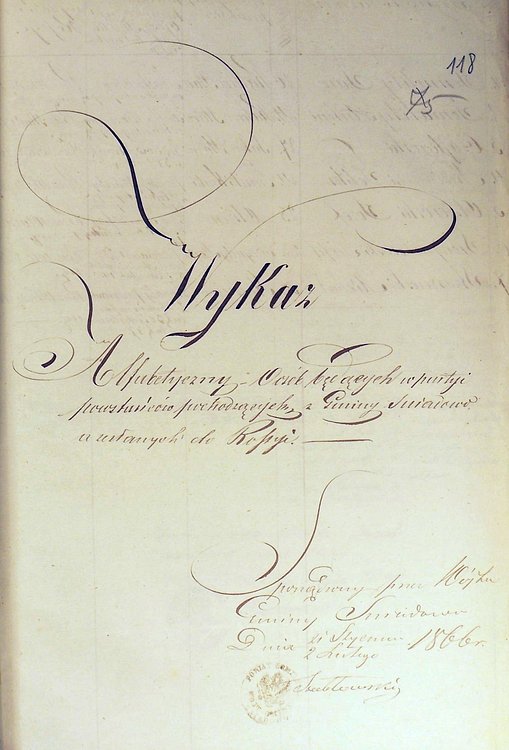 118
Wykaz
Alfabetyczny Osób będących w partyi
powstańców pochodzących, z Gminy Śniadowo
a zesłanych do Rossyi.
Sporządzony przez Wójta
Gminy Śniadowo
Dnia 21 Stycznia
2 Lutego
1866 r.